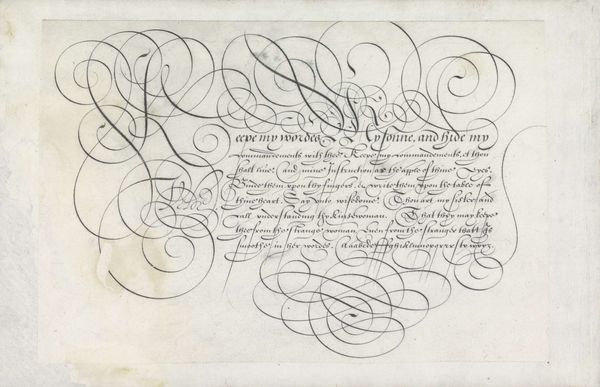 Keepe my wordes My sonne, and hide my
commaundements with thee. Keepe my commaundements, & thou
shalt live. and mine Instruction as the apple of thine eyes.
Binde them upon thy fingers, & write them upon the table of
thine heart. Say unto wisdome: Thou art my sister, and
call understanding thy kinswoman. That they may keepe
thee from the strange woman. Even from the stranger that is
smoothe in her wordes.